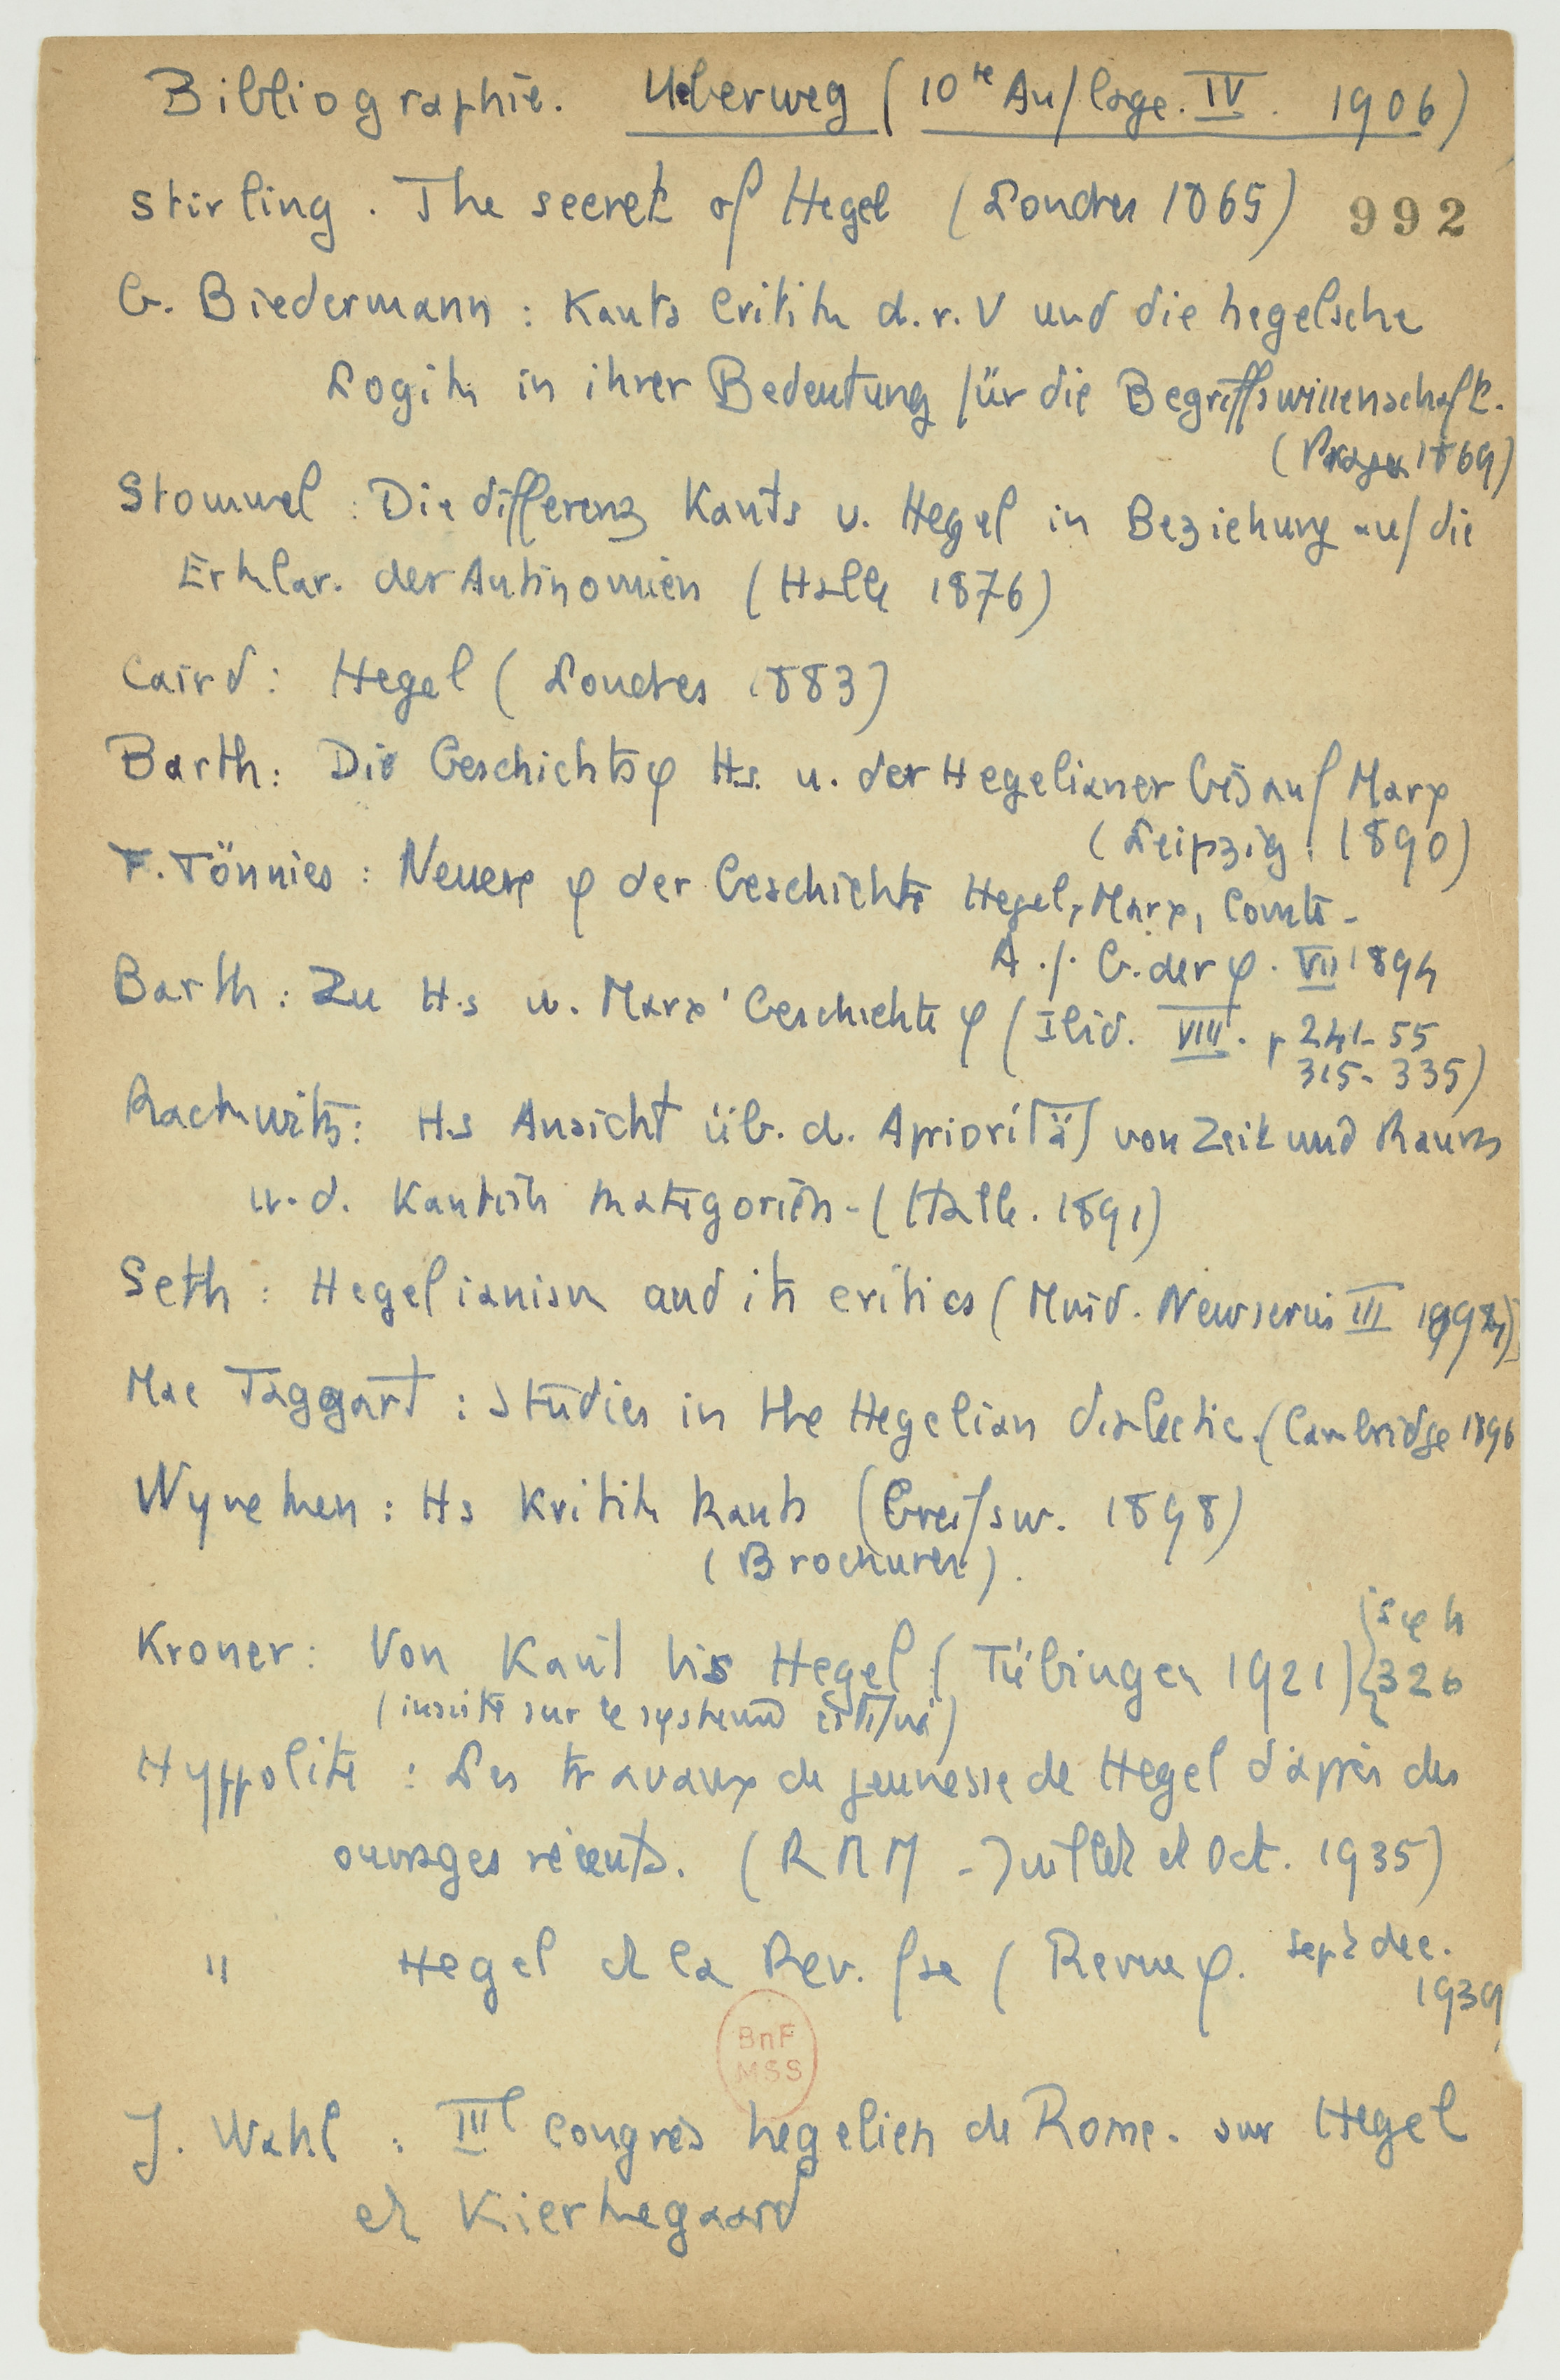 Bibliographie. Ueberweg (10te Auflage. IV. 1906)
Stirling. The secret of Hegel (Londres 1865) 992
G. Biedermann : Kants Critik d. r. V und die hegelsche
Logik in ihrer Bedeutung für die Begriffswissenschaft.
(Prague 1869)
Stommel : Die differenz Kants u. Hegel in Beziehung auf die
Erklar. der Antinomien (Halle 1876)
Caird : Hegel (Londres 1883)
Barth : Die Geschichtsφ Hs. u. der Hegelianer bis auf Marx
(Leipzig. 1890)
F. Tönnies : Neuere φ der Geschichte Hegel, Marx, Comte -
A. f. G. der φ. VII 1894
Barth : Zu H.s u. Marx' Geschichte φ (Ibid. VIII. p 241-55
315-335)
Rackwitz : H.s Ansicht üb. d. Apriorität von Zeit und Raum
u. d. Kantish Kategorien - (Halle. 1891)
Seth : Hegelianism and its critics (Mind. New series III 1894)
Mac Taggart : Studies in the Hegelian dialectic. (Cambridge 1896
Wyneken : Hs Kritik Kants (Greifsw. 1898)
(Brochures).
Kroner : Von Kant bis Hegel (Tübingen 1921) 326
(insiste sur le système)
Hyppolite : Les travaux de jeunesse de Hegel d'après des
ouvrages récents. (RMM - Juillet et Oct. 1935)
" Hegel et la Rev. fse (Revue φ. Sept dec.
1939
BnF
MSS
J. Wahl : IIIe Congrès hegelien de Rome. sur Hegel
et Kierkegaard